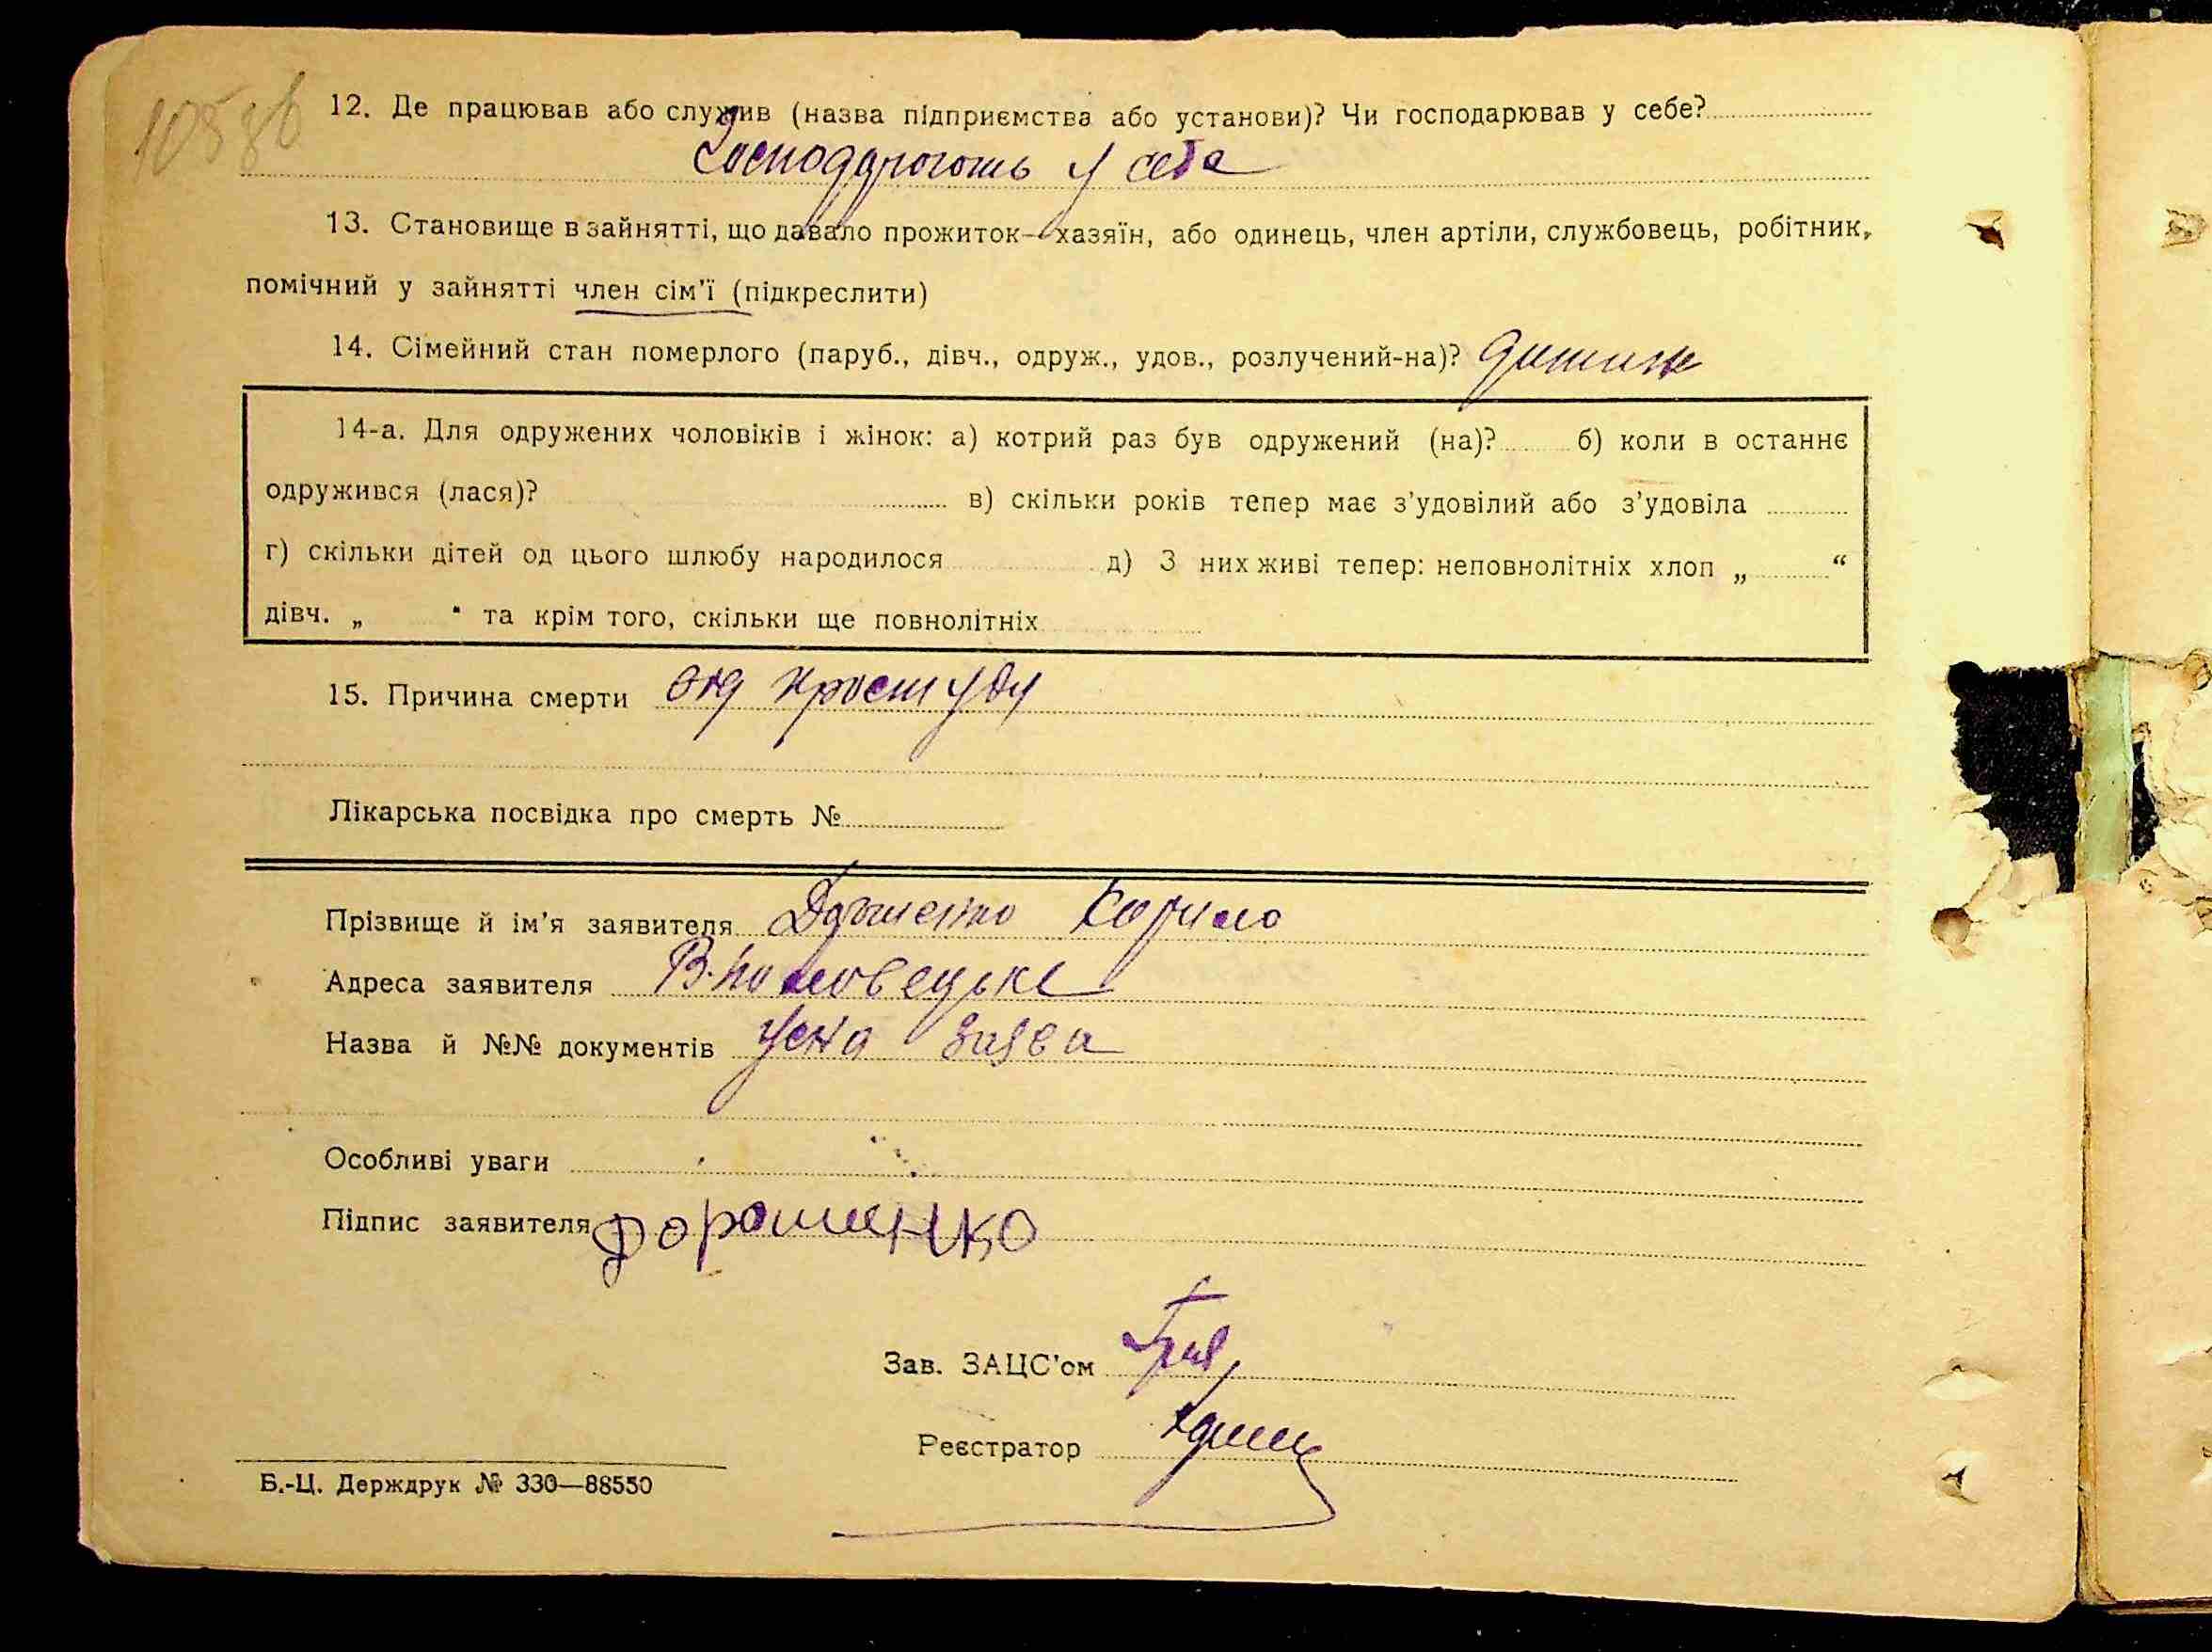 105 зв
12. Де працював або служив (назва підприємства або установи)? Чи господарював у себе?
Господарюють у себе
13. Становище в зайнятті, що давало прожиток—хазяїн, або одинець, член артіли, службовець, робітник,
помічний у зайнятті член сім'ї (підкреслити)
14. Сімейний стан померлого (паруб., дівч., одруж., удов., розлучений-на)? дитина
14-а. Для одружених чоловіків і жінок: а) котрий раз був одружений (на)? б) коли в останнє
одружився (лася)? в) скільки років тепер має з'удовілий або з'удовіла
г) скільки дітей од цього шлюбу народилося д) З них живі тепер: неповнолітніх хлоп „ “
дівч. „ “ та крім того, скільки ще повнолітніх
15. Причина смерти од простуди
Лікарська посвідка про смерть №
Прізвище й ім'я заявителя
Адреса заявителя В. Половецьке
Назва й №№ документів усна заява
Особливі уваги
Підпис заявителя Дорошенко
Зав. ЗАЦС'ом
Реєстратор
Б.-Ц. Держдрук № 330—88550